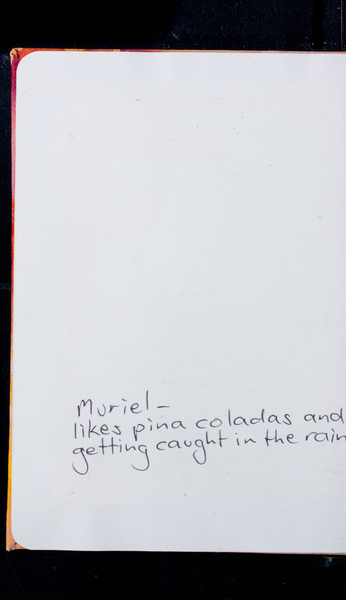 Muriel –
likes pina coladas and
getting caught in the rain